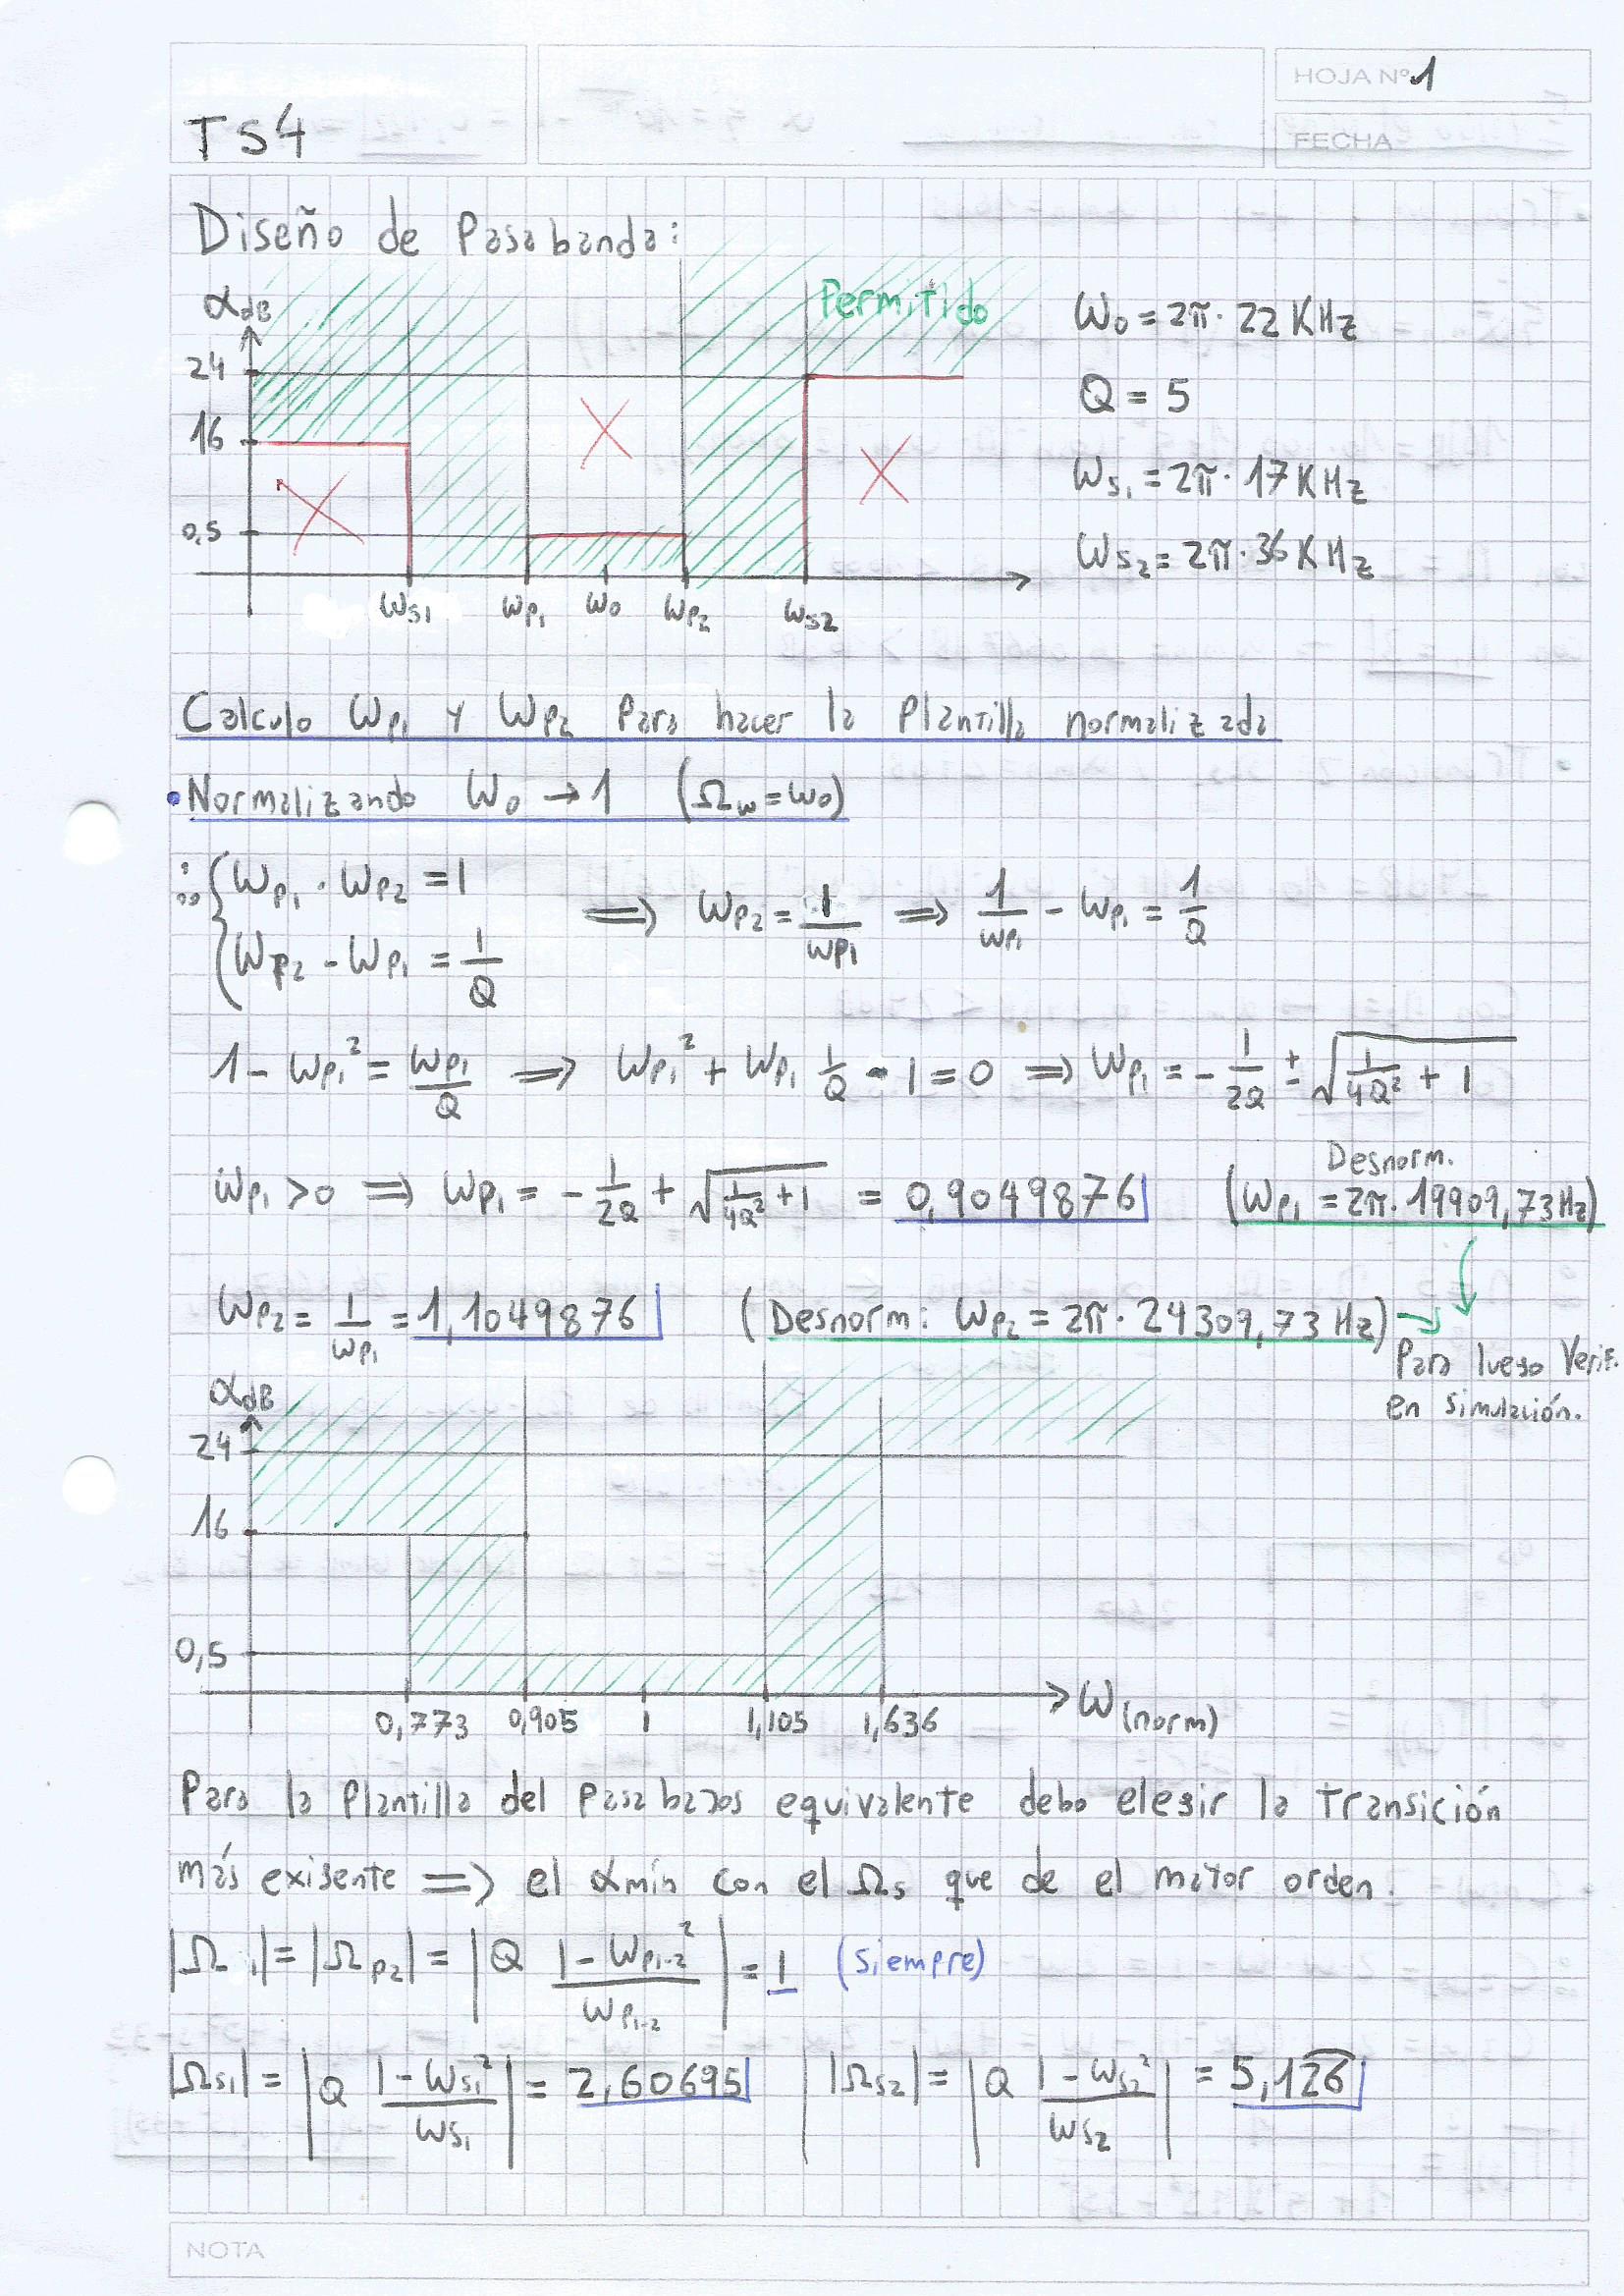 HOJA Nº 1
TS4
FECHA
Diseño de Pasabanda:
αdB
Permitido
24
16
0,5
ωs1 ωp1 ω0 ωp2 ωs2
ω0 = 2π · 22 KHz
Q = 5
ωs1 = 2π · 17 KHz
ωs2 = 2π · 36 KHz
Calculo ωp1 y ωp2 Para hacer la Plantilla normalizada
• Normalizando ω0 → 1 (Ωω = ω0)
∴ { ωp1 · ωp2 = 1
ωp2 - ωp1 = 1/Q
⟹ ωp2 = 1/ωp1 ⟹ 1/ωp1 - ωp1 = 1/Q
1 - ωp1² = ωp1/Q ⟹ ωp1² + ωp1 1/Q - 1 = 0 ⟹ ωp1 = - 1/2Q ± √(1/4Q² + 1)
ωp1 > 0 ⟹ ωp1 = - 1/2Q + √(1/4Q² + 1) = 0,9049876
Desnorm.
(ωp1 = 2π. 19909,73 Hz)
ωp2 = 1/ωp1 = 1,1049876 (Desnorm: ωp2 = 2π · 24309,73 Hz)
Para luego Verif.
en simulación.
αdB
24
16
0,5
0,773 0,905 1 1,105 1,636
ω(norm)
Para la Plantilla del Pasabajos equivalente debo elegir la transición
más exigente ⟹ el αmín con el Ωs que de el mayor orden.
|Ω 1| = |Ωp2| = |Q (1 - ωp1-2²)/ωp1-2| = 1 (siempre)
|Ωs1| = |Q (1 - ωs1²)/ωs1| = 2,60695 |Ωs2| = |Q (1 - ωs2²)/ωs2| = 5,126
NOTA